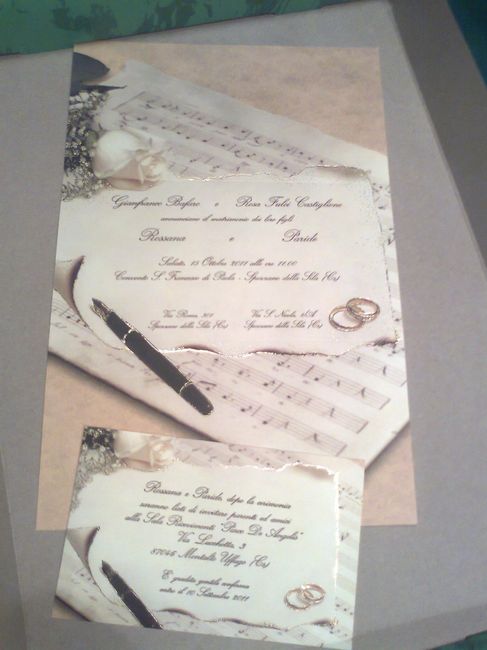 Gianfranco Bafaro e Rosa Fulci Castiglione
annunciano il matrimonio dei loro figli
Rossana e Paride
Sabato, 15 Ottobre 2011 alle ore 11.00
Convento S. Francesco di Paola - Spezzano della Sila (Cs)
Via Roma, 301 Via S. Nicola, 18A
Spezzano della Sila (Cs) Spezzano della Sila (Cs)
Rossana e Paride, dopo la cerimonia
saranno lieti di invitare parenti ed amici
alla Sala Ricevimenti "Parco De Angelis"
Via Lucchetta, 3
87046 Montalto Uffugo (Cs)
È gradita gentile conferma
entro il 10 Settembre 2011